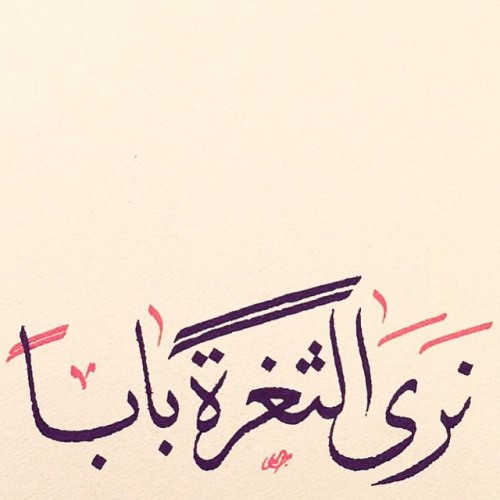 نَرَى الثغرة بابًا